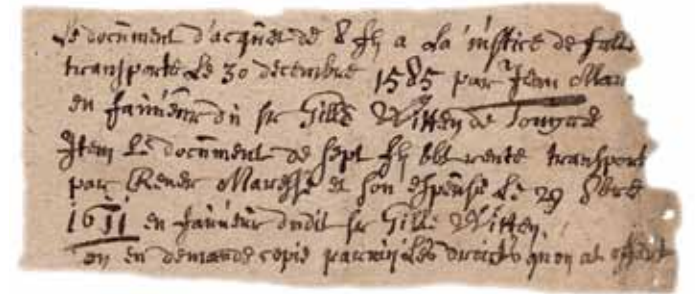 Le document d'acquet de 8 fl a la justice de fall
transporté Le 30 decembre 1585 par Jean Mar
en faúveúr dú sr Gille Witten de Jongne
Item Le document de sept fl bbt rente transport
par Rener Maresse et son espouse le 29
1611 en faúveúr dudit sr Gille Witten.
on en demande copie parmij les droicts qu'on at